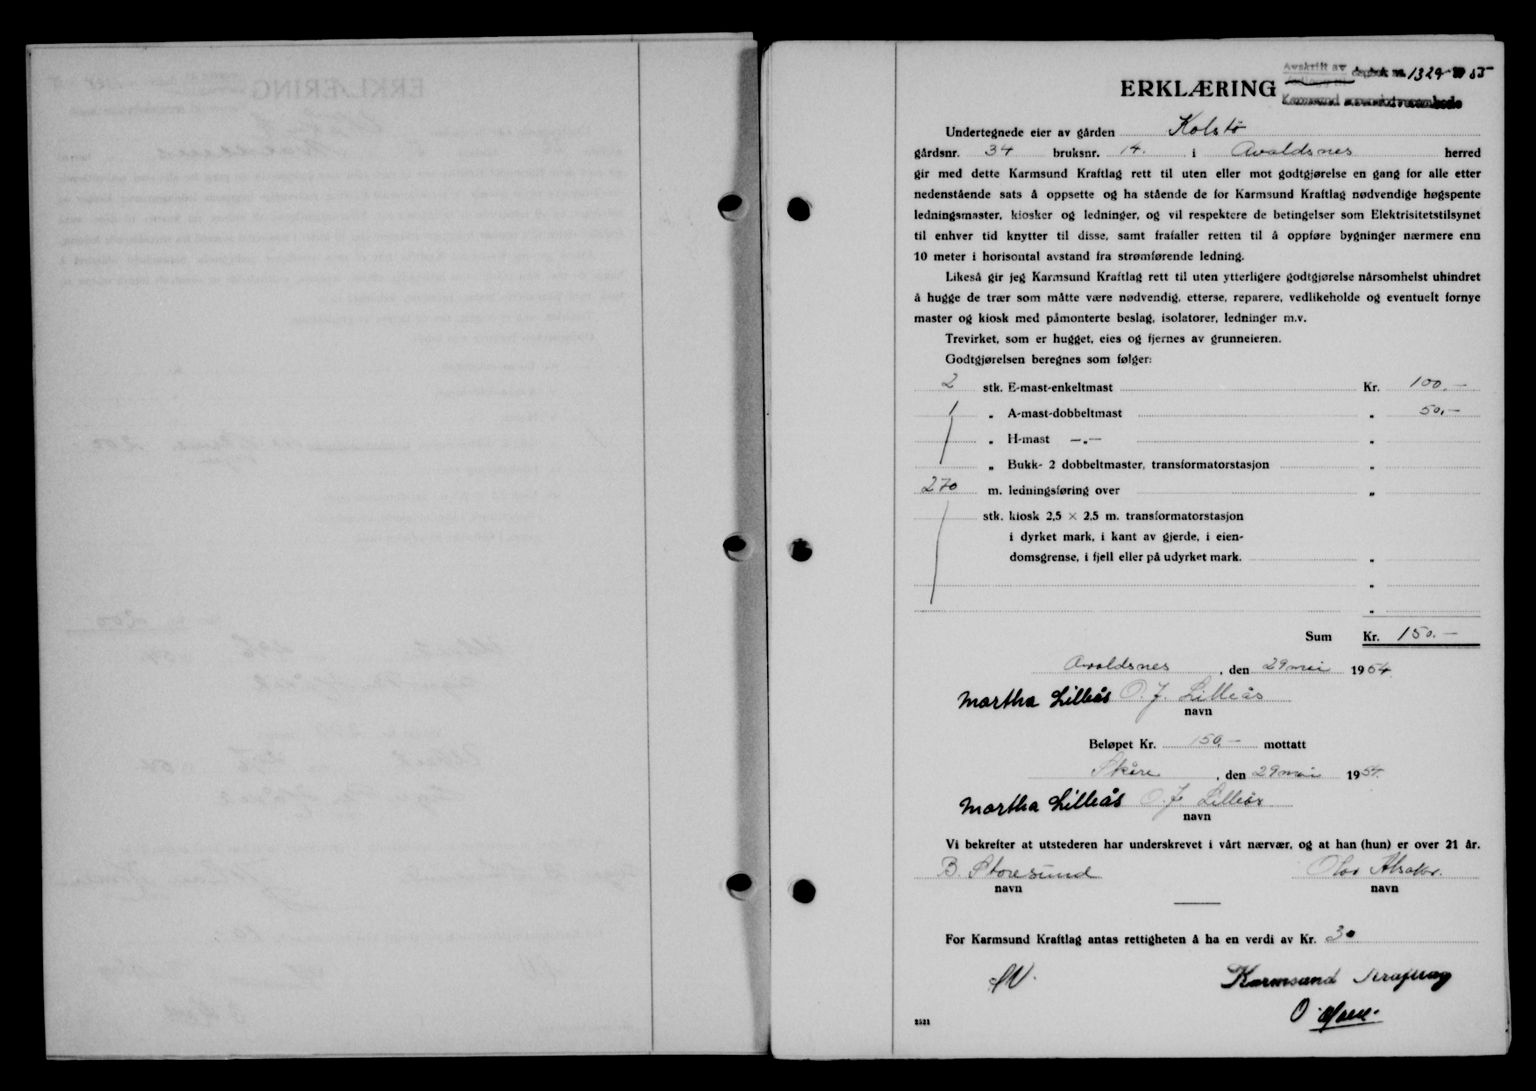 ERKLÆRING
Avskrift av
dagbok nr. 1329 1955
Karmsund
Undertegnede eier av gården Kolstø
gårdsnr. 34 bruksnr. 14. i Avaldsnes herred
gir med dette Karmsund Kraftlag rett til uten eller mot godtgjørelse en gang for alle etter
nedenstående sats å oppsette og ha stående de for Karmsund Kraftlag nødvendige høgspente
ledningsmaster, kiosker og ledninger, og vil respektere de betingelser som Elektrisitetstilsynet
til enhver tid knytter til disse, samt frafaller retten til å oppføre bygninger nærmere enn
10 meter i horisontal avstand fra strømførende ledning.
Likeså gir jeg Karmsund Kraftlag rett til uten ytterligere godtgjørelse nårsomhelst uhindret
å hugge de trær som måtte være nødvendig, etterse, reparere, vedlikeholde og eventuelt fornye
master og kiosk med påmonterte beslag, isolatorer, ledninger m.v.
Trevirket, som er hugget, eies og fjernes av grunneieren.
Godtgjørelsen beregnes som følger:
2 stk. E-mast-enkeltmast Kr. 100.-
1 „ A-mast-dobbeltmast „ 50.-
„ H-mast —„— „
„ Bukk- 2 dobbeltmaster, transformatorstasjon „
270 m. ledningsføring over „
stk. kiosk 2,5 × 2,5 m. transformatorstasjon
i dyrket mark, i kant av gjerde, i eien-
domsgrense, i fjell eller på udyrket mark. „
„
„
Sum Kr. 150.-
Avaldsnes, den 29 mai 1954
Martha Lilleås O. J. Lilleås
navn
Beløpet Kr. 150.- mottatt
Skåre, den 29 mai 1954
Martha Lilleås O. J. Lilleås
navn
Vi bekrefter at utstederen har underskrevet i vårt nærvær, og at han (hun) er over 21 år.
B. Storesund Olav
navn navn
For Karmsund Kraftlag antas rettigheten å ha en verdi av Kr. 30
Karmsund Kraftlag
O.
2521